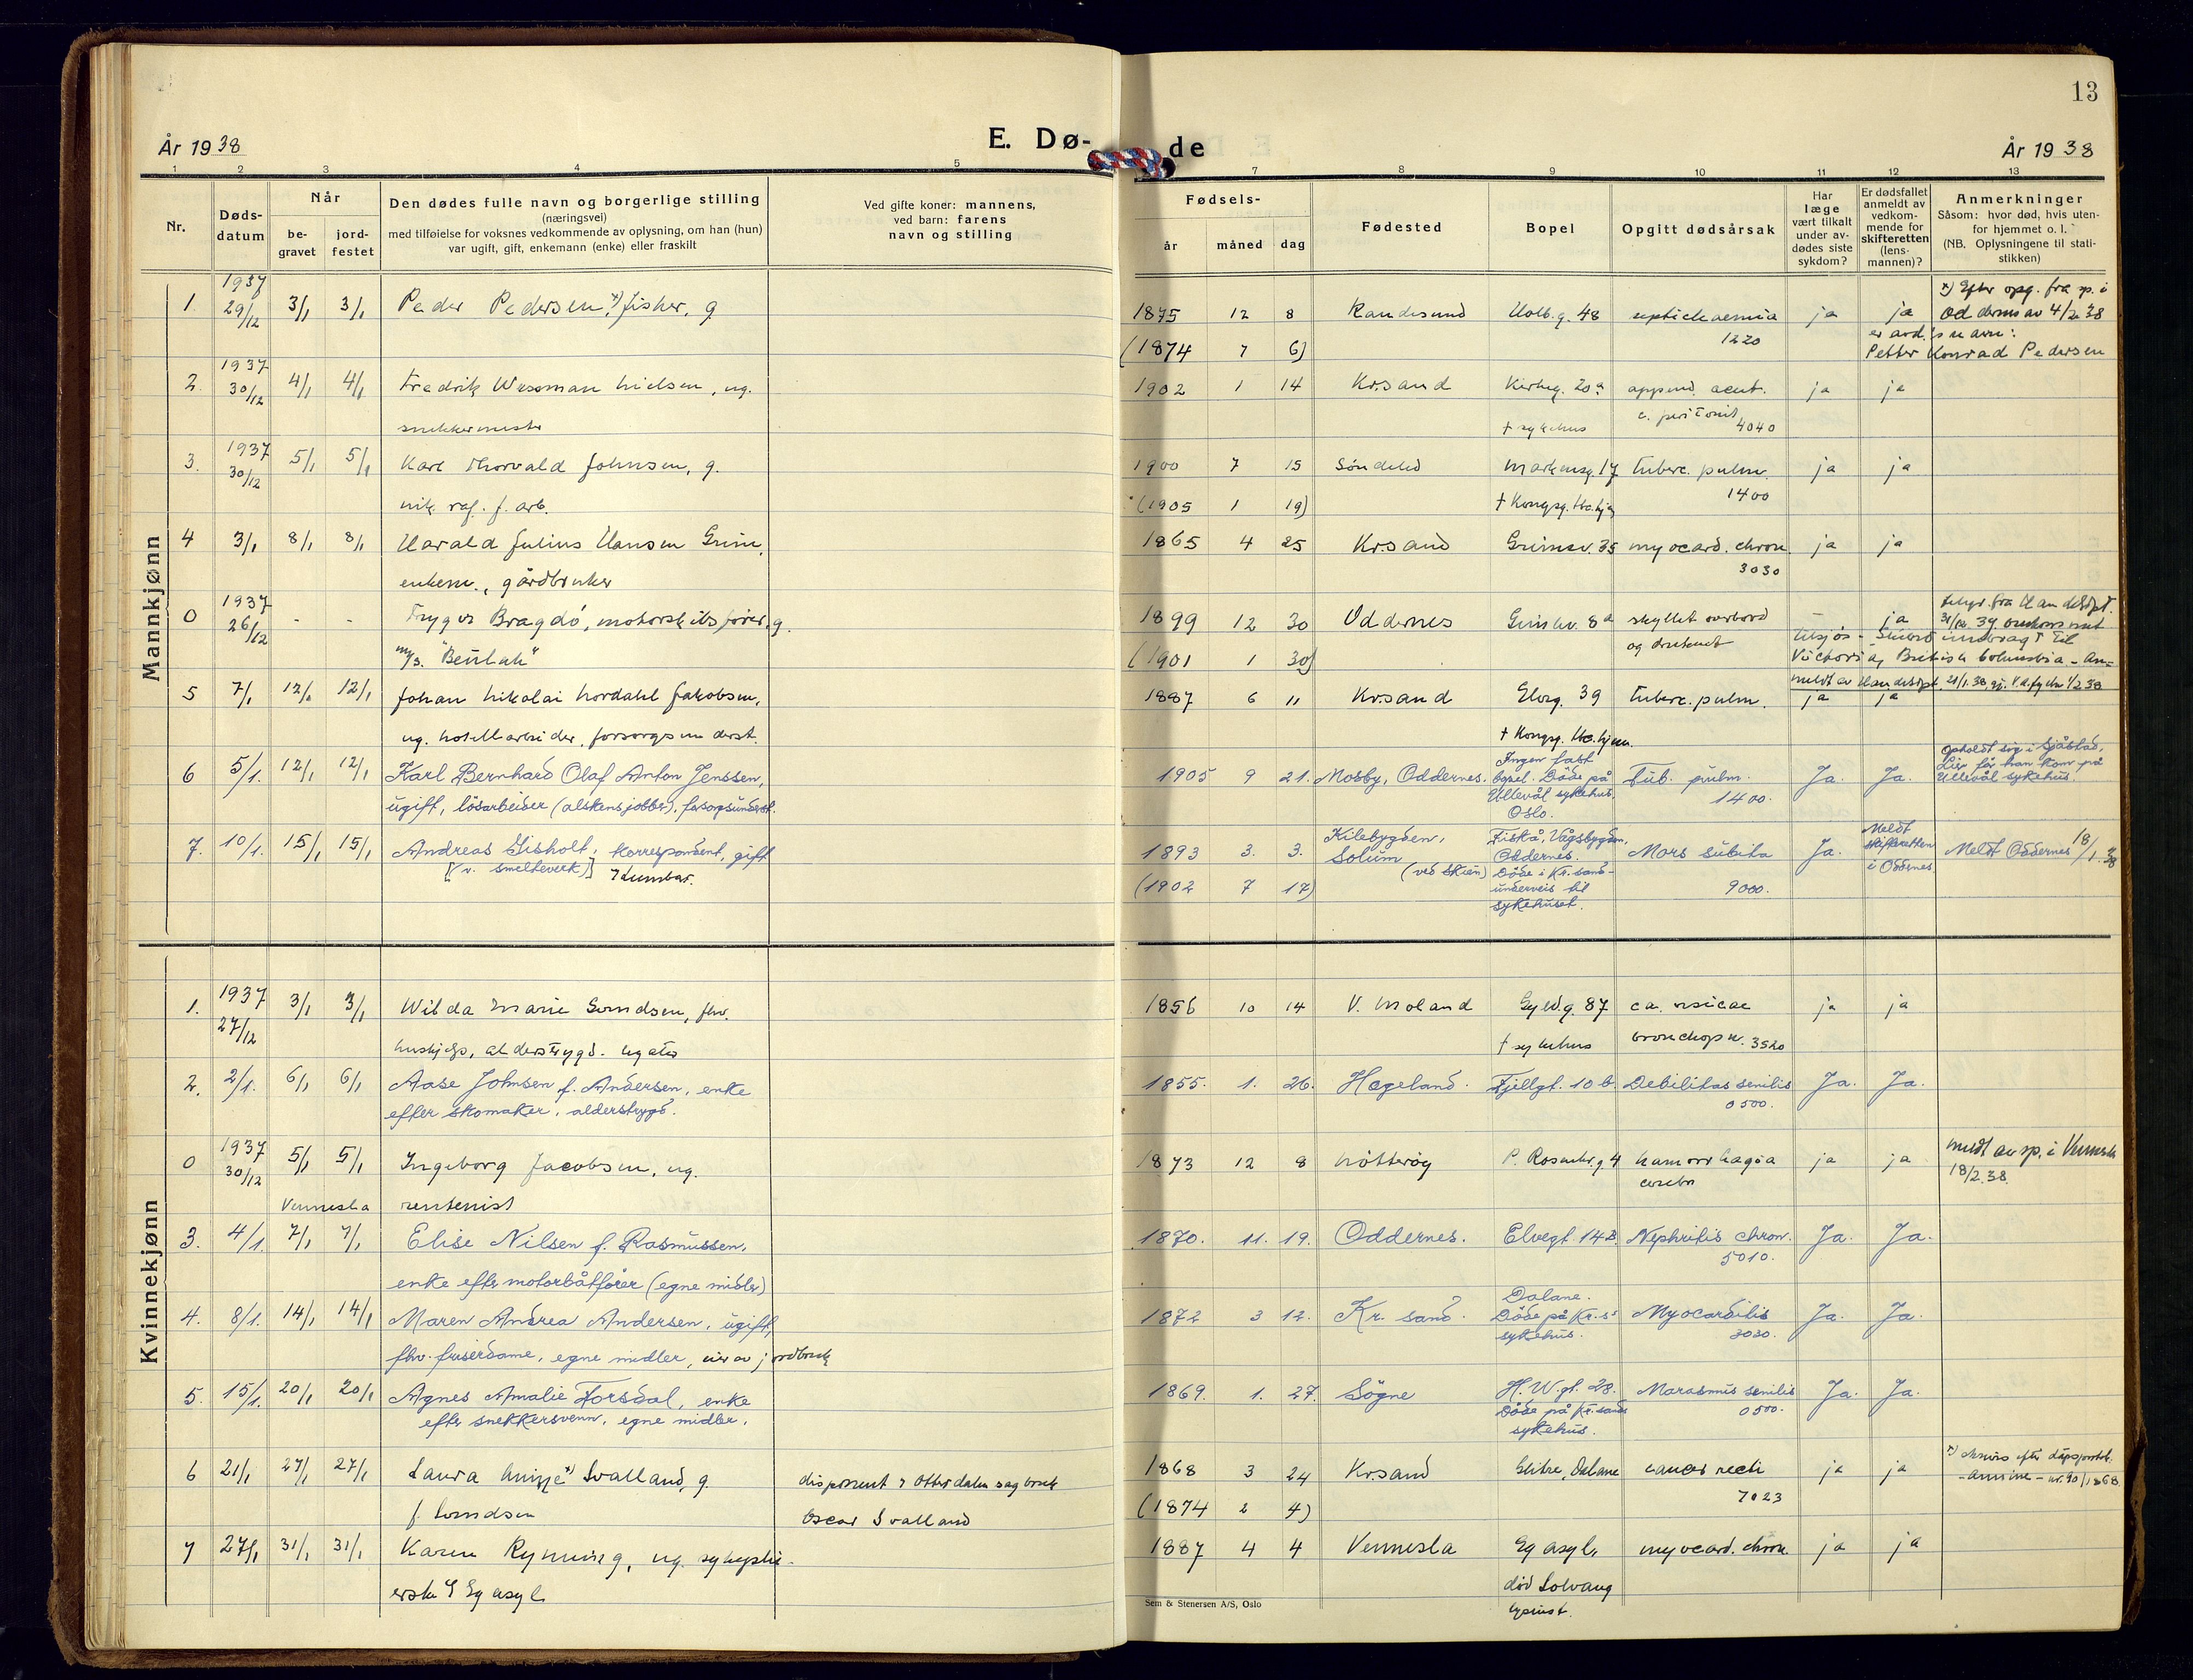 13
År 1938
E. Dø-
de
År 1938
1 2 3 4 5
7 8 9 10 11 12 13
Nr.
Døds-
datum
Når
be-
gravet
jord-
festet
Den dødes fulle navn og borgerlige stilling
(næringsvei)
med tilføielse for voksnes vedkommende av oplysning, om han (hun)
var ugift, gift, enkemann (enke) eller fraskilt
Ved gifte koner: mannens,
ved barn: farens
navn og stilling
Fødsels-
år måned dag
Fødested
Bopel
Opgitt dødsårsak
Har
læge
vært tilkalt
under av-
dødes siste
sykdom?
Er dødsfallet
anmeldt av
vedkom-
mende for
skifteretten
(lens-
mannen)?
Anmerkninger
Såsom: hvor død, hvis uten-
for hjemmet o. l.
(NB. Oplysningene til stati-
stikken)
Mannkjønn
1. 1937 29/12 3/1 3/1 Peder Pedersen, x) fisker, g.
1875 12 8 Randesund Holb.g. 48 septichaemia ja ja
(1874 7 6) 1220
x) Efter opg. fra sp. i
Oddernes av 4/2 38
er avd.'s navn:
Petter Konrad Pedersen
2. 1937 30/12 4/1 4/1 Fredrik Nielsen, ug.
snekkermester
1902 1 14 Kr.sand Kirkeg. 20a append. acut. ja ja
† sykehus c. peritonit. 4040
3. 1937 30/12 5/1 5/1 Karl Thorvald Johnsen, g.
nik. raf. f. arb.
1900 7 15 Søndeled Markensg. 17 tuberc. pulm. ja ja
(1905 1 19) † Kongsg. 1400
4 3/1 8/1 8/1 Harald Julius Hansen Grim,
enkem., gårdbruker
1865 4 25 Kr.sand Grimsv. 35 myocard. chron. ja ja
3030
0 1937 26/12 - - Trygve Bragdø, motorskibsfører, g.
m/s. "Beulah"
1899 12 30 Oddernes 8a skyllet overbord - ja
(1901 1 30) og druknet
Victoria, British Columbia
5 7/1 12/1 12/1 Johan Nikolai Nordahl Jakobsen,
ug. hotellarbeider, forsorgsunderst.
1887 6 11 Kr.sand Elvg. 39 tuberc. pulm. ja ja
† Kongsg.
6 5/1. 12/1 12/1 Karl Bernhard Olaf Anton Jenssen,
ugift, løsarbeider (alskens jobber), forsorgsunderst.
1905 9 21. Mosby, Oddernes. Ingen fast
bopel. Døde på
Ullevål sykehus.
Oslo.
Tub. pulm. Ja. Ja.
1400.
Opholdt sig i Sjåstad,
Lier før han kom på
Ullevål sykehus.
7. 10/1. 15/1 15/1 Andreas Gisholt, korrespondent, gift
[v. smelteverk]
1893 3. 3. Kilebygden,
Solum
(ved Skien)
(1902 7 17)
Fiskå, Vågsbygden,
Oddernes.
Døde i Kr.sand
underveis til
sykehuset.
Mors subita Ja.
9000.
Meldt
skifteretten
i Oddernes.
Meldt Oddernes 18/1 38
Kvinnekjønn
1. 1937 27/12 3/1 3/1 Wilda Marie Gundsen, fhv.
hushjelp, alderstrygd.
1856 10 14 V. Moland Gyld.g. 87 ca. vesicae ja ja
† sykehus bronchopn. 3520
2. 2/1. 6/1 6/1 Aase Johnsen f. Andersen, enke
efter skomaker, alderstrygd.
1855. 1. 26. Hægeland. Fjellgt. 10 b. Debilitas senilis Ja. Ja.
0500.
0 1937 30/12 5/1 5/1 Ingeborg Jacobsen, ug.
Vennesla rentenist
1873 12 8 Nøtterøy P. 4 haemorrhagia ja ja
cerebri
meldt av sp. i Vennesla
18/2.38.
3. 4/1. 7/1 7/1 Elise Nilsen f. Rasmussen,
enke efter motorbåtfører (egne midler)
1870. 11. 19. Oddernes. Elvegt. 14B. Nephritis chron. Ja. Ja.
5010.
4. 8/1. 14/1 14/1 Maren Andrea Andersen, ugift,
fhv. friserdame, egne midler, eier av jordbruk
1872 3 12. Kr. sand. Dalane.
Døde på Kr.s.
sykehus.
Myocarditis Ja. Ja.
3030.
5. 15/1. 20/1 20/1 Agnes Amalie Forsdal, enke
efter snekkersvenn, egne midler.
1869. 1. 27. Søgne H. W. gt. 28.
Døde på Kr.sands
sykehus.
Marasmus senilis Ja. Ja.
0500.
6 21/1 27/1 27/1 Laura x) Svalland, g.
f. Gundsen
disponent v Otterdalen sagbruk
Oscar Svalland
1868 3 24 Kr.sand Dalane cancer recti ja ja
(1874 2 4) 7023
x) efter dåpsprotok.
- Annine - nr. 90/1868.
7 27/1 31/1 31/1 Karen Rynning, ug. sykeplei-
erske v Eg asyl
1887 4 4 Vennesla Eg asyl, myocard. chron. ja ja
død Solvang
Sem & Stenersen A/S, Oslo